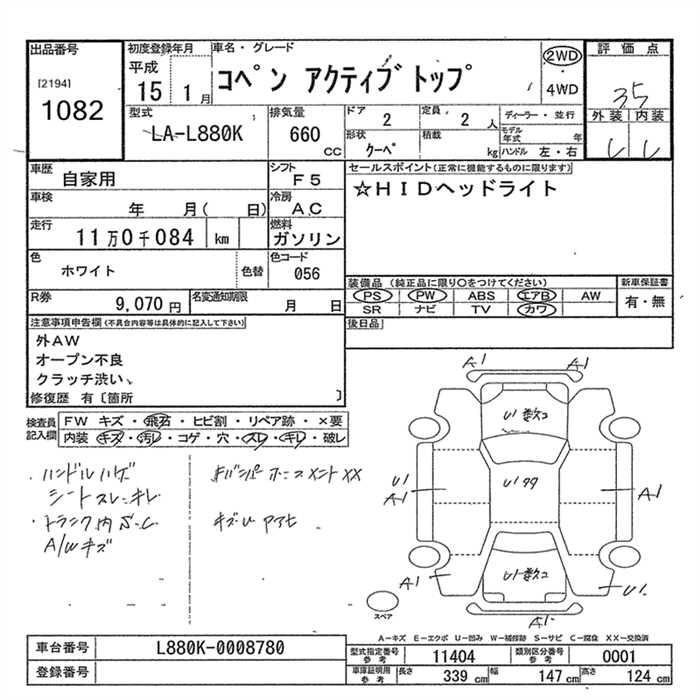 出品番号
[2194]
1082
初度登録年月
平成
15 1 月
車名・グレード
コペン アクティブトップ
2WD
4WD
評価点
3.5
外装 内装
型式
LA-L880K
排気量
660 CC
ドア
2
定員
2 人
形状
クーペ
積載
kg
ディーラー・並行
モデル年式 年
ハンドル 左・右
車歴
自家用
シフト
F5
車検
年 月( 日)
冷房
AC
走行
11万0千084 km
燃料
ガソリン
色
ホワイト
色替
色コード
056
R券
9,070 円
名変通知期限
月 日
セールスポイント(正常に機能するものに限ります)
☆HIDヘッドライト
装備品(純正品に限り○をつけてください)
PS PW ABS エアB AW
SR ナビ TV カワ
新車保証書
有・無
後日品
注意事項申告欄(不具合内容等は具体的に記入して下さい)
外AW
オープン不良
クラッチ渋い、
修復歴 有〔箇所 〕
検査員記入欄
FW キズ・飛石・ヒビ割・リペア跡・×要
内装・キズ・汚レ・コゲ・穴・スレ・キレ・破レ
・ハンドルハゲ
シートスレ・キレ
・トランク内 S.C
A/Wキズ
XX
キズU
A1
A1
U1 数コ
U1
A1
U1
A1
A1
U1 数コ
U1
A1
スペア
A-キズ E-エクボ U-凹み W-補修跡 S-サビ C-腐食 XX-交換済
車台番号
L880K-0008780
登録番号
型式指定番号 参考
11404
類別区分番号 参考
0001
車庫証明用 参考
長さ 339 cm
幅 147 cm
高さ 124 cm